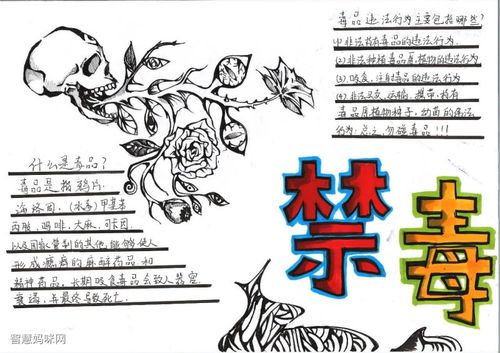 毒品违法行为主要包括哪些?
(1)非法持有毒品的违法行为.
(2)非法种植毒品原植物的违法行为
(3)吸食、注射毒品的违法行为
(4)非法买卖、运输、携带、持有
毒品原植物种子、幼苗的违法
行为.总之,勿碰毒品!!!
什么是毒品?
毒品是指鸦片.
海洛因,(冰毒)甲基苯
丙胺,吗啡,大麻,可卡因.
以及国家管制的其他能够使人
形成瘾癖的麻醉药品和
精神药品,长期吸食毒品会致人
衰竭,并最终导致死亡.
禁毒
智慧妈咪网